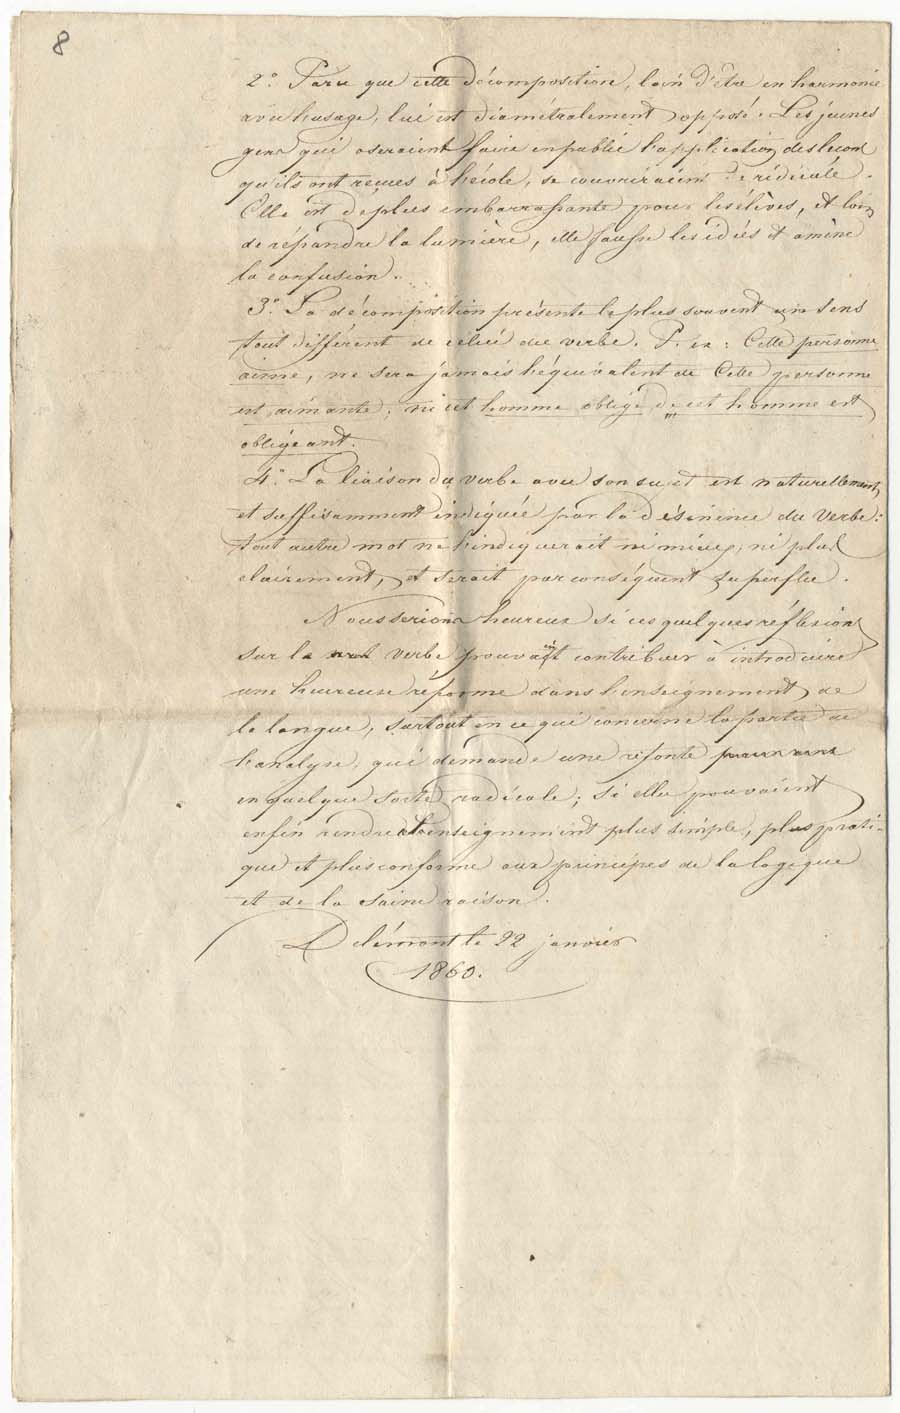 8
2.° Parce que cette décomposition, loin d'être en harmonie
avec l'usage, lui est diamétralement opposé. Les jeunes
gens qui oseraient faire en public l'application des leçons
qu'ils ont reçues à l'école, se couvriraient de ridicule.
Elle est de plus embarrassante pour les élèves, et loin
de répandre la lumière, elle fausse les idées et amène
la confusion.
3.° La décomposition présente le plus souvent un sens
tout différent de celui du verbe. P. ex: Cette personne
aime, ne sera jamais l'équivalent de Cette personne
est aimante; ni cet homme oblige de cet homme est
obligeant.
4.° La liaison du verbe avec son sujet est naturellement
et suffisamment indiquée par la désinence du verbe:
tout autre mot ne l'indiquerait ni mieux, ni plus
clairement, et serait par conséquent superflu.
Nous serions heureux si ces quelques réflexions
sur le verbe pouvaient contribuer à introduire
une heureuse réforme dans l'enseignement de
la langue, surtout en ce qui concerne la partie de
l'analyse, qui demande une refonte
en quelque sorte radicale; si elles pouvaient
enfin rendre l'enseignement plus simple, plus prati-
que et plus conforme aux principes de la logique
et de la saine raison.
Delémont le 22 janvier
1860.